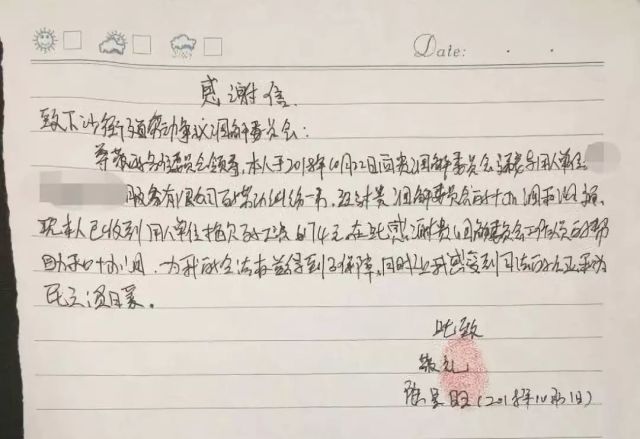 Date: . .
感谢信
致下沙街道劳动争议调解委员会:
尊敬的各位委员会领导,本人于2018年10月22日向贵调解委员会 用人单位
服务有限公司的劳动纠纷一事,经过贵调解委员会的 调和
现本人已收到用人单位拖欠的工资674元 在此感谢贵调解委员会工作人员的帮
助和 ,为我的合法权益得到了保障,同时让我感受到司法的公正和为
民
此致
敬礼
(2018年10月31日)